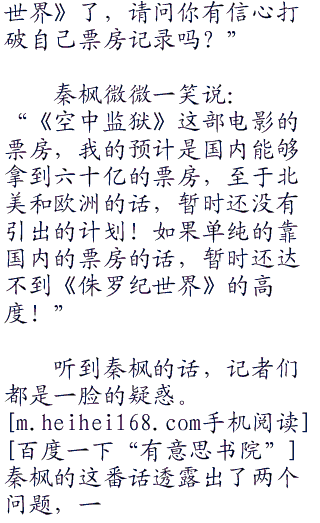 世界》了，请问你有信心打
破自己票房记录吗？”
秦枫微微一笑说：
“《空中监狱》这部电影的
票房，我的预计是国内能够
拿到六十亿的票房，至于北
美和欧洲的话，暂时还没有
引出的计划！如果单纯的靠
国内的票房的话，暂时还达
不到《侏罗纪世界》的高
度！”
听到秦枫的话，记者们
都是一脸的疑惑。
[m.heihei168.com手机阅读]
[百度一下“有意思书院”]
秦枫的这番话透露出了两个
问题，一